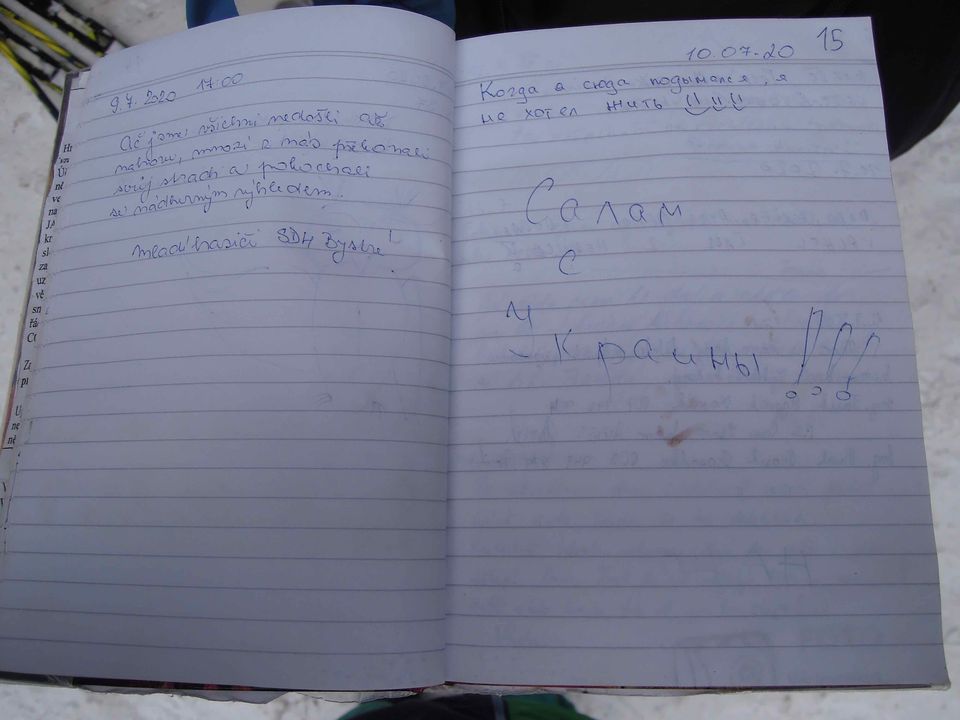 9.7.2020 17:00
Ač jsme všichni nedošli až
nahoru, mnozí z nás překonali
svůj strach a pokochali
se nádherným výhledem.
Mladí hasiči SDH Bystré!
15
10.07.20
Когда я сюда подымался, я
не хотел жить
Салам
с
У
-краины!!!